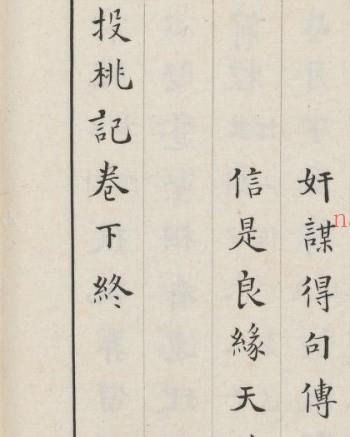 奸謀得句傳
信是良緣天
投桃記卷下終